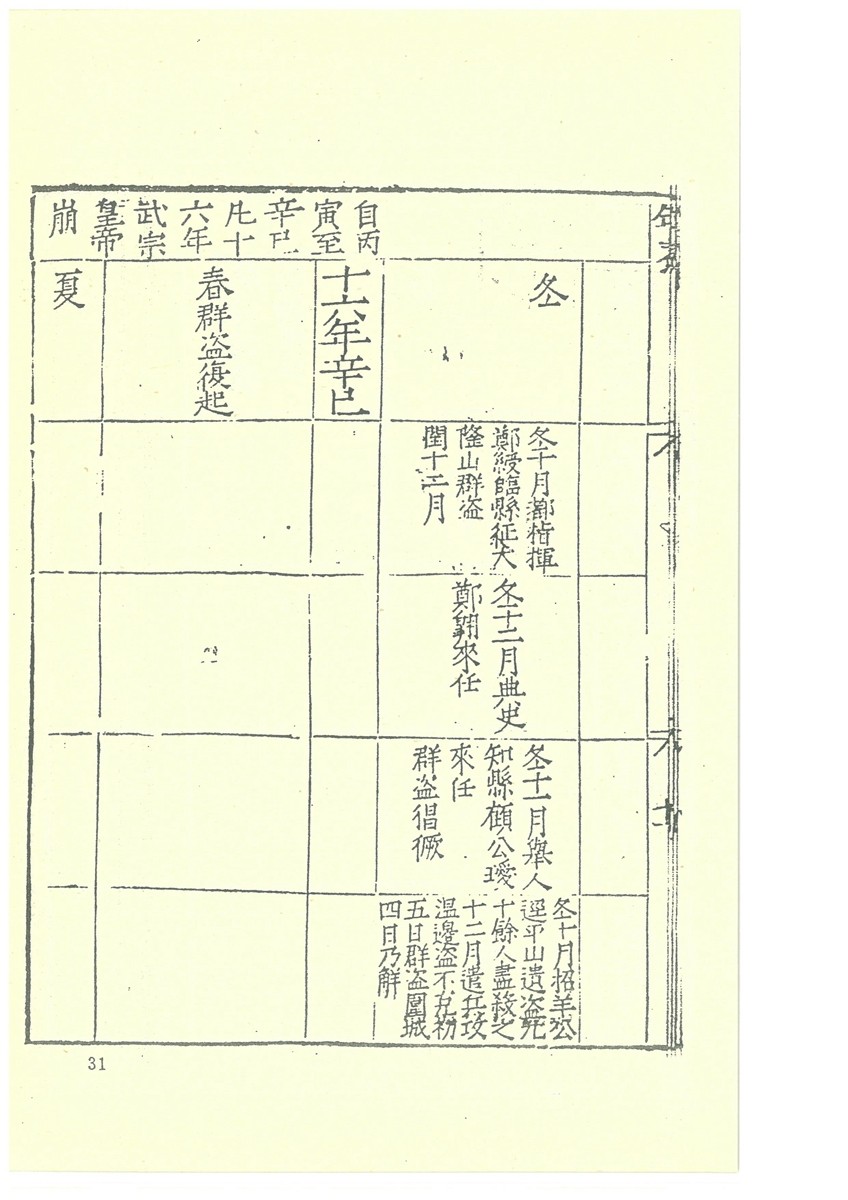 年表
冬
冬十月鄭指揮
鄭綬臨縣征大
隆山群盗
閏十二月
冬十二月典史
鄭翱來任
冬十一月舉人
知縣顧公璦
來任
群盗猖獗
冬十月招羊公
逕平山遺盗死
十餘人盡殺之
十二月遣兵攻
温邊盗不克初
五日群盗圍城
四日乃解
自丙
寅至
辛巳
凡十
六年
武宗
皇帝
崩
十六年辛巳
春群盗復起
夏
31